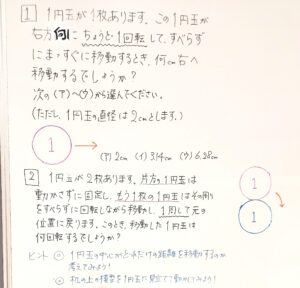 1 1円玉が1枚あります。この1円玉が
右方向にちょうど1回転して、すべらず
にまっすぐに移動するとき、何cm右へ
移動するでしょうか？
次の(ア)～(ウ)から選んでください。
(ただし、1円玉の直径は2cmとします。)
1
(ア)2cm (イ)3.14cm (ウ)6.28cm
2 1円玉が2枚あります。片方の1円玉は
動かさずに固定し、もう1枚の1円玉はその周り
をすべらずに回転しながら移動し、1周して元の
位置に戻ります。このとき、移動した1円玉は
何回転するでしょうか？
1
1
ヒント ◎ 1円玉の中心がどれだけの距離を移動するのか
考えてみよう！
◎ 机の上の模型を1円玉に見立てて動かしてみよう！